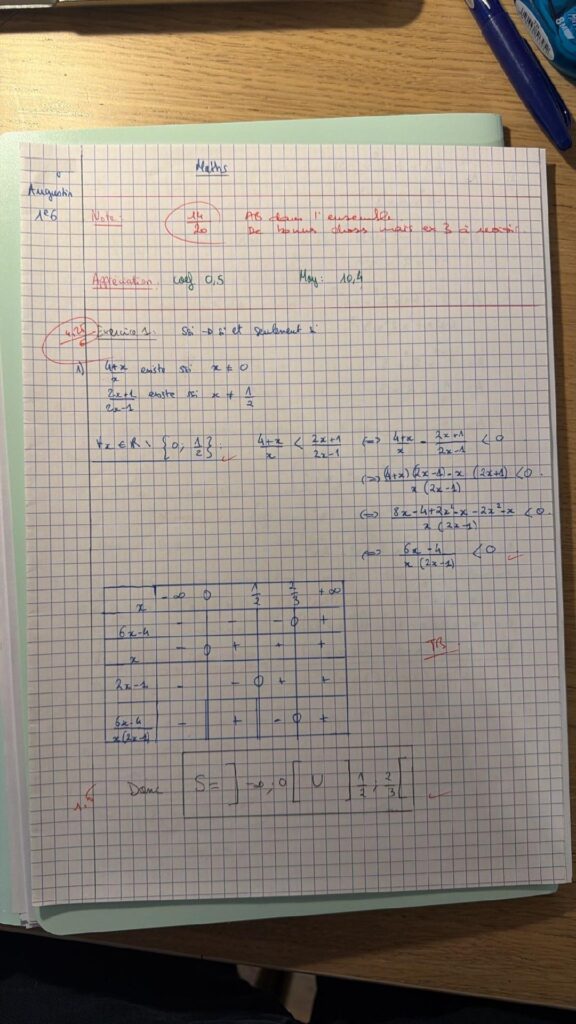 Maths
Augustin
1e6
Note: 14/20 AB dans l'ensemble
De bonnes choses mais ex 3 à revoir.
Appréciation. coef 0,5 Moy: 10,4
4,25/6 Exercice 1. ssi → si et seulement si
1) 4+x/x existe ssi x ≠ 0
2x+1/2x-1 existe ssi x ≠ 1/2
∀x ∈ R \ {0; 1/2}. 4+x/x < 2x+1/2x-1 (=) 4+x/x - 2x+1/2x-1 < 0
(=) (4+x)(2x-1)-x(2x+1)/x(2x-1) < 0.
(=) 8x-4+2x²-x-2x²-x/x(2x-1) < 0.
(=) 6x-4/x(2x-1) < 0
x -∞ 0 1/2 2/3 +∞
6x-4 - - - 0 +
x - 0 + + +
TB.
2x-1 - - 0 + +
6x-4/x(2x-1) - + - 0 +
Donc S = ]-∞; 0[ U ]1/2; 2/3[